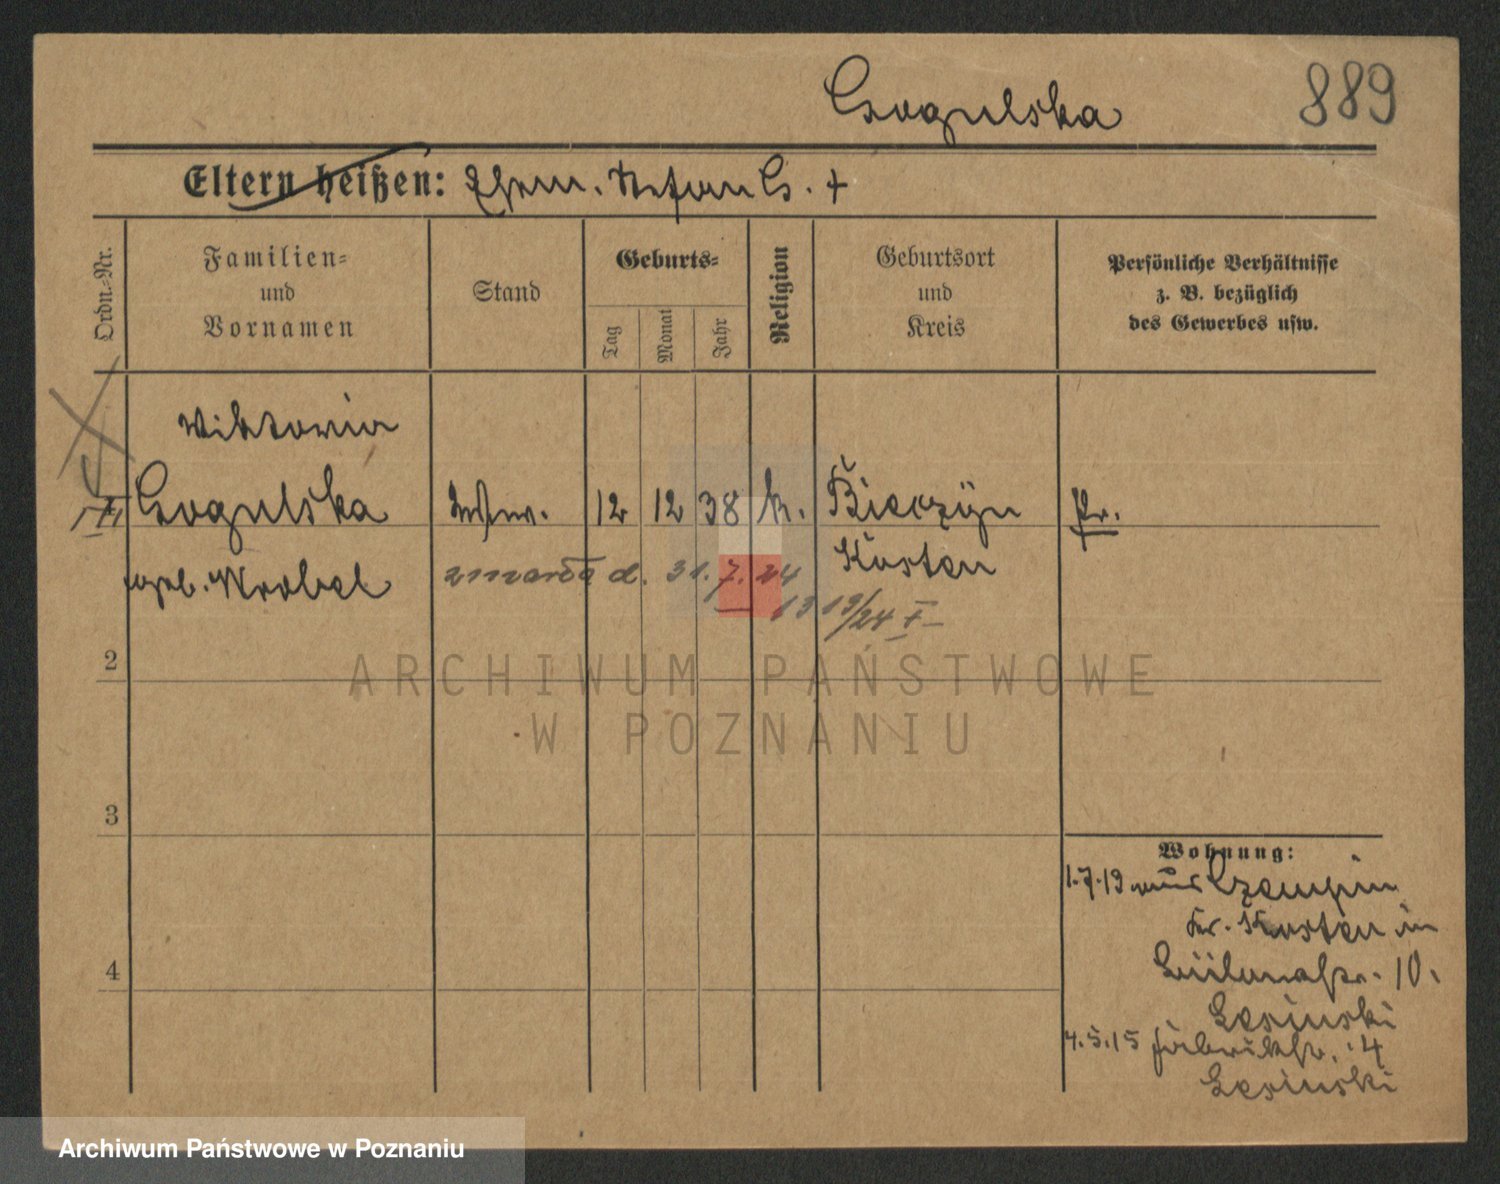 Gogulska
889
Eltern heißen: Ehem. Stefan G. †
Ordn.-Nr.
Familien-
und
Vornamen
Stand
Geburts-
Tag
Monat
Jahr
Religion
Geburtsort
und
Kreis
Persönliche Verhältnisse
z. B. bezüglich
des Gewerbes usw.
Wiktoria
Gogulska
Wtw. 12 12 38 k. Bieczyn
Pr.
geb. Wrobel
Kosten
zmarła d. 31. 7. 24
13 19/24 I
2
ARCHIWUM PAŃSTWOWE
W POZNANIU
3
Wohnung:
1.7.13 aus Czempin
Kr. Kosten in
10.
Lesinski
4
4.5.15 Fabrikstr. 4
Lesinski
Archiwum Państwowe w Poznaniu